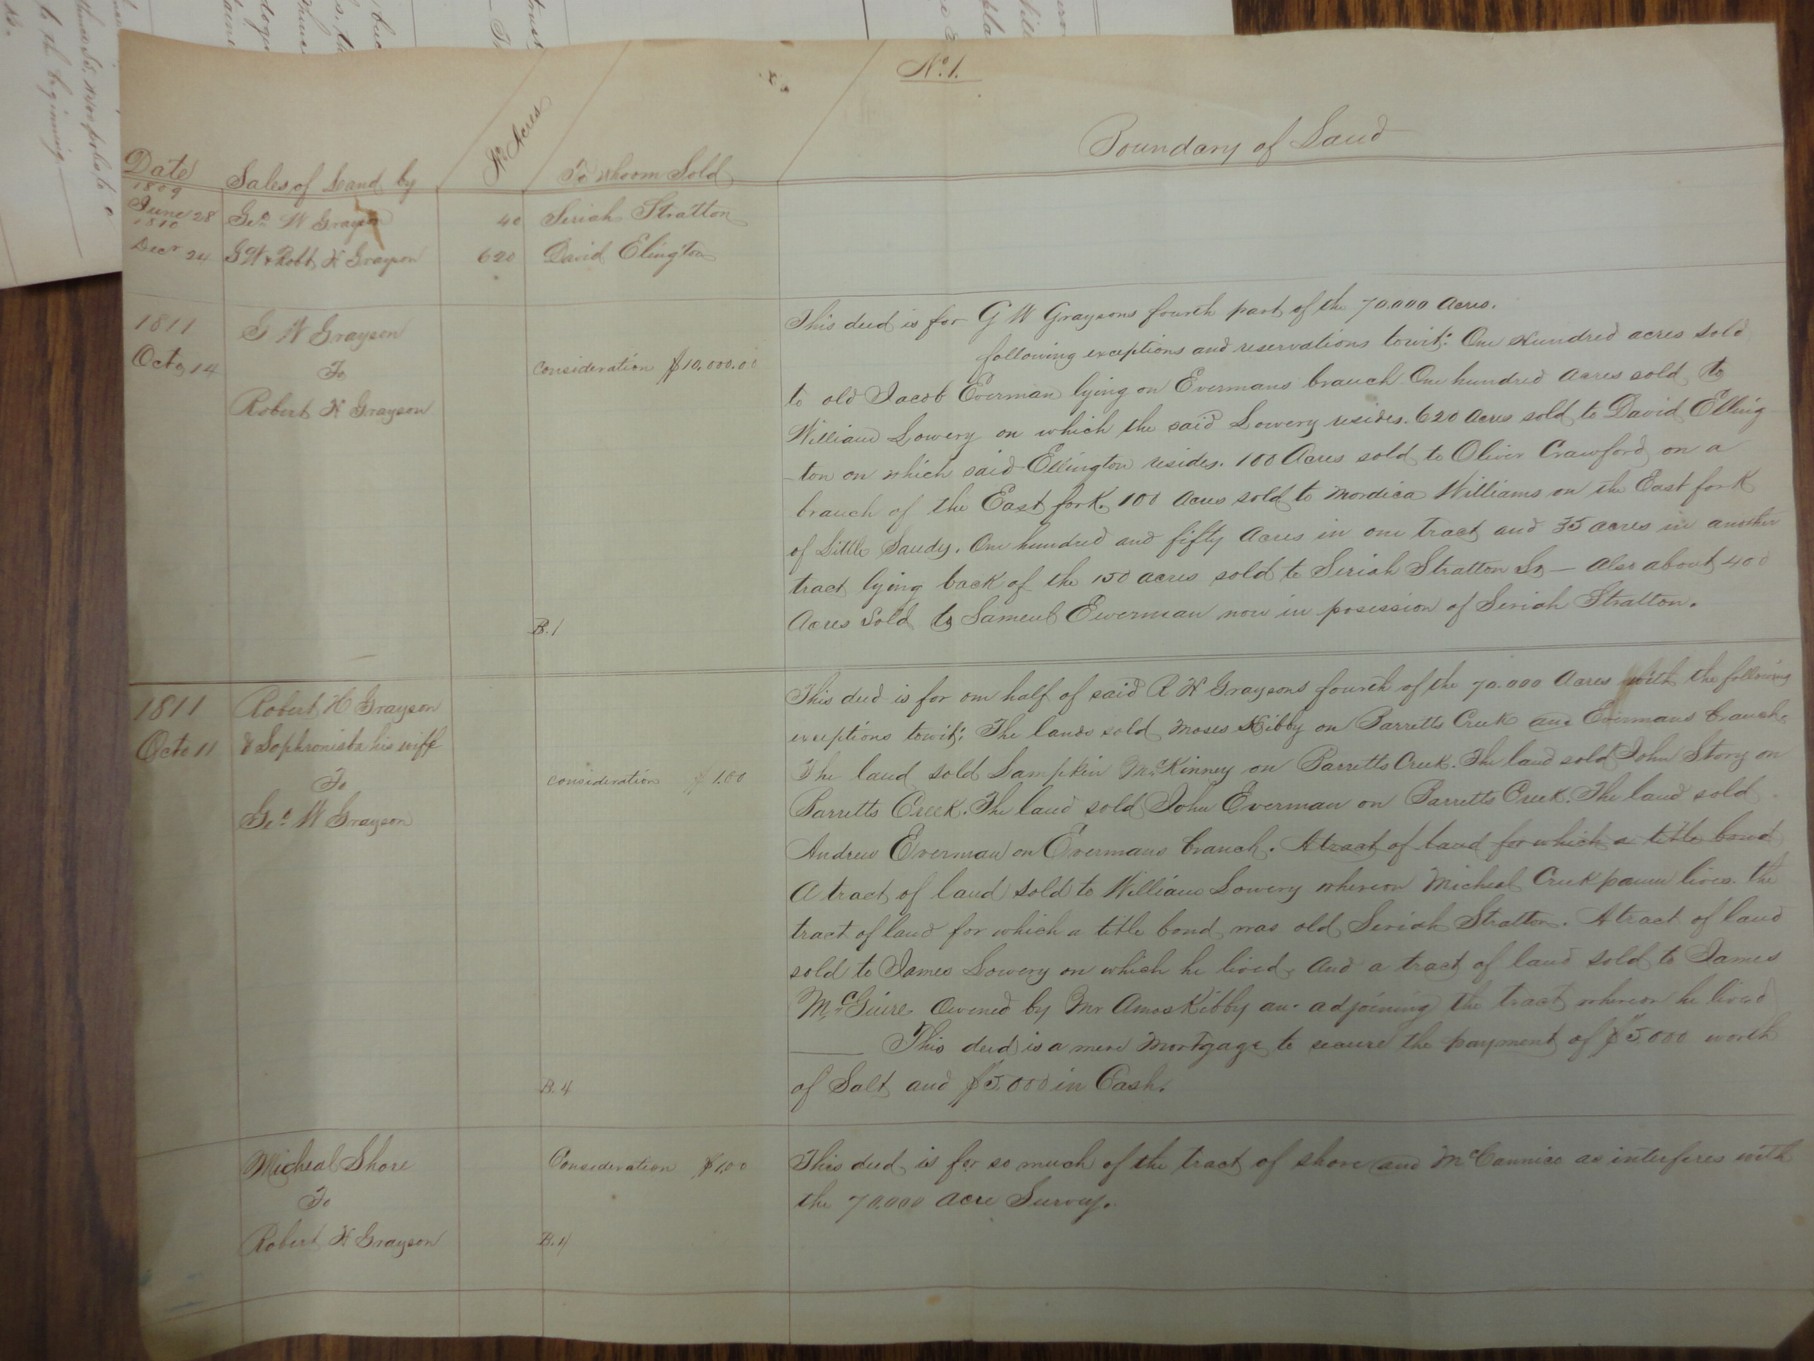 No. 1.
Date
Sales of Land by
No. Acres
To whoom Sold
Boundary of Land
1809
June 28
Geo W Grayson
40
Seriah Stratton
1810
Decr 24
G W & Robt H Grayson
620
David Elington
1811
Octo 14
G W Grayson
To
Robert H Grayson
consideration $10,000.00
B. 1
This deed is for G W Graysons fourth part of the 70.000 Acres.
following exceptions and reservations towit: One Hundred acres sold
to old Jacob Everman lying on Evermans branch One hundred Acres sold to
William Lowery on which the said Lowery resides. 620 Acres sold to David Elling
-ton on which said Ellington resides. 100 Acres sold to Oliver Crawford on a
branch of the East fork. 100 Acres sold to Mordica Williams on the East fork
of Little Sandy. One hundred and fifty Acres in one tract and 35 acres in another
tract lying back of the 150 acres sold to Seriah Stratton Sr — Also about 400
Acres Sold to Samuel Ewerman now in posession of Seriah Stratton.
1811
Octo 11
Robert H Grayson
& Sophronista his wiff
To
Geo W Grayson
consideration $1.00
B. 4
This deed is for one half of said R H Graysons fourth of the 70.000 Acres with the following
exceptions towit: The lands sold Moses Kibby on Barretts Creek and Evermans branch.
The land sold Lampkin McKinney on Barretts Creek. The land sold John Story on
Barretts Creek. The land sold John Everman on Barretts Creek. The land sold
Andrew Everman on Evermans branch. A tract of land for which a title bond
A tract of land sold to William Lowery whereon Micheal Creekpaum lives. the
tract of land for which a title bond was old Seriah Stratton. A tract of land
sold to James Lowery on which he lived. And a tract of land sold to James
McGuire owened by Mr Amos Kibby an. adjoining the tract whereon he lived
This deed is a mere Mortgage to secure the payment of $5.000 worth
of Salt and $5.000 in Cash.
Micheal Shore
To
Robert H Grayson
Consideration $1.00
B. 4
This deed is for so much of the tract of shore and McCannico as interferes with
the 70.000 Acre Survey.
to the beginning